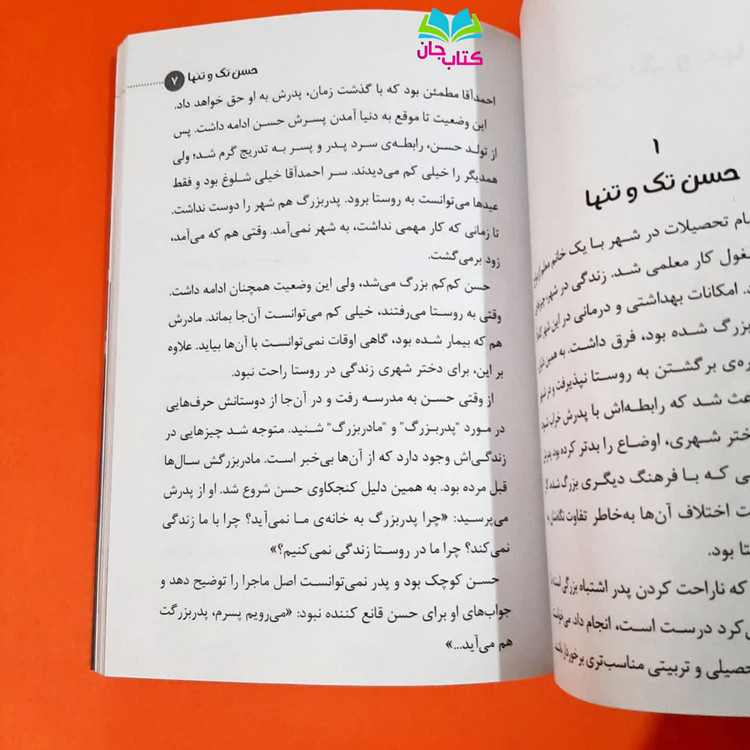 کتاب جان
۱
حسن تک و تنها
ام تحصیلات در شهر با یک خانم معلم
غول کار معلمی شد. زندگی در شهر،
د. امکانات بهداشتی و درمانی در این شهر
بزرگ شده بود، فرق داشت. به همین
ره‌ی برگشتن به روستا نپذیرفت و در
عث شد که رابطه‌اش با پدرش خراب شود
ختر شهری، اوضاع را بدتر کرده بود.
ی که با فرهنگ دیگری بزرگ شده
ت اختلاف آن‌ها به‌خاطر تفاوت
تا بود.
که ناراحت کردن پدر اشتباه بزرگی است
ی‌کرد درست است، انجام داد.
حصیلی و تربیتی مناسب‌تری برخوردار باشد
حسن تک و تنها ۷
احمدآقا مطمئن بود که با گذشت زمان، پدرش به او حق خواهد داد.
این وضعیت تا موقع به دنیا آمدن پسرش حسن ادامه داشت. پس
از تولد حسن، رابطه‌ی سرد پدر و پسر به تدریج گرم شد؛ ولی
همدیگر را خیلی کم می‌دیدند. سر احمدآقا خیلی شلوغ بود و فقط
عیدها می‌توانست به روستا برود. پدربزرگ هم شهر را دوست نداشت.
تا زمانی که کار مهمی نداشت، به شهر نمی‌آمد. وقتی هم که می‌آمد،
زود برمی‌گشت.
حسن کم‌کم بزرگ می‌شد، ولی این وضعیت همچنان ادامه داشت.
وقتی به روستا می‌رفتند، خیلی کم می‌توانست آن‌جا بماند. مادرش
هم که بیمار شده بود، گاهی اوقات نمی‌توانست با آن‌ها بیاید. علاوه
بر این، برای دختر شهری زندگی در روستا راحت نبود.
از وقتی حسن به مدرسه رفت و در آن‌جا از دوستانش حرف‌هایی
در مورد "پدربزرگ" و "مادربزرگ" شنید. متوجه شد چیزهایی در
زندگی‌اش وجود دارد که از آن‌ها بی‌خبر است. مادربزرگش سال‌ها
قبل مرده بود. به همین دلیل کنجکاوی حسن شروع شد. او از پدرش
می‌پرسید: «چرا پدربزرگ به خانه‌ی ما نمی‌آید؟ چرا با ما زندگی
نمی‌کند؟ چرا ما در روستا زندگی نمی‌کنیم؟»
حسن کوچک بود و پدر نمی‌توانست اصل ماجرا را توضیح دهد و
جواب‌های او برای حسن قانع کننده نبود: «می‌رویم پسرم، پدربزرگت
هم می‌آید...»